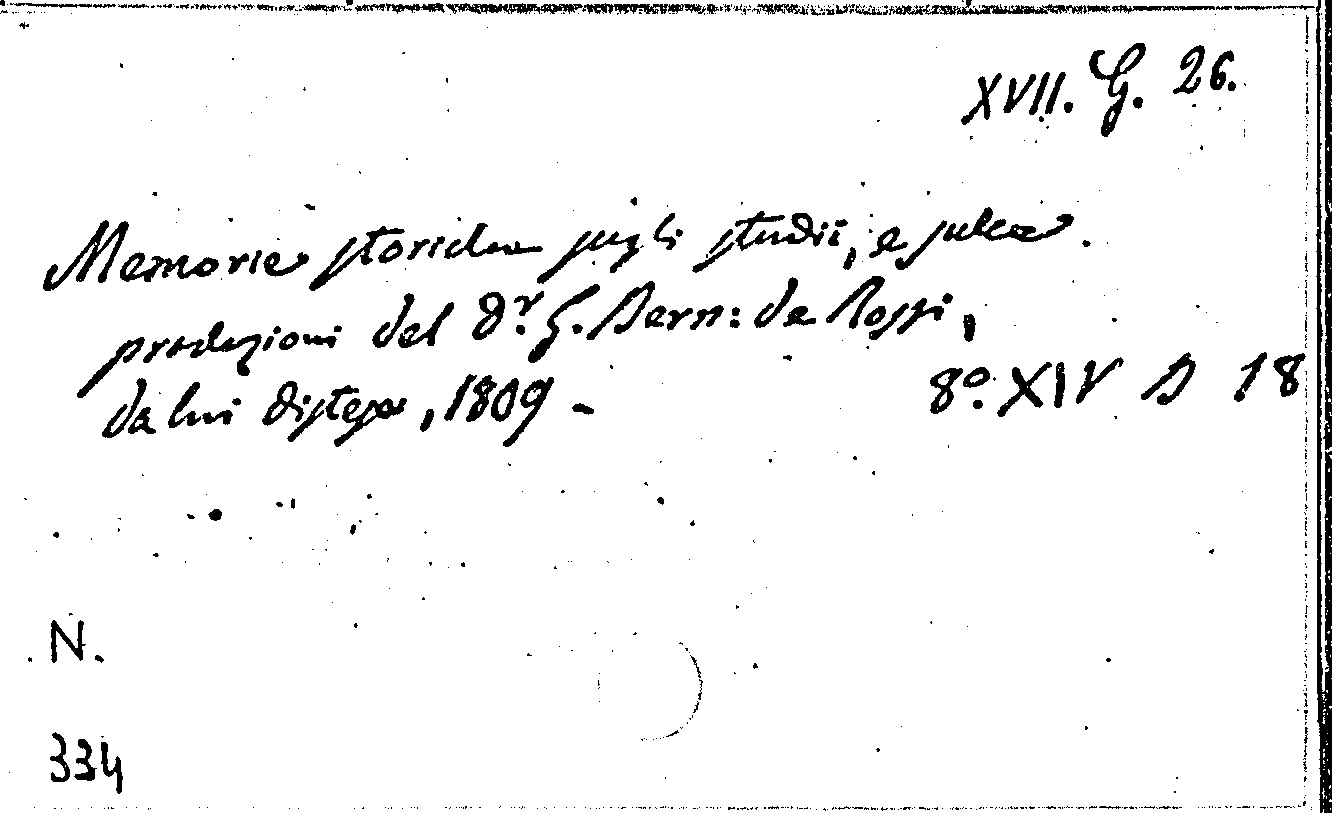 XVII. G. 26.
Memorie storiche sugli studii, e sulle
produzioni del Dr. G. Bern: de Rossi,
da lui distese, 1809 -
8o. XIV B 18
N.
334